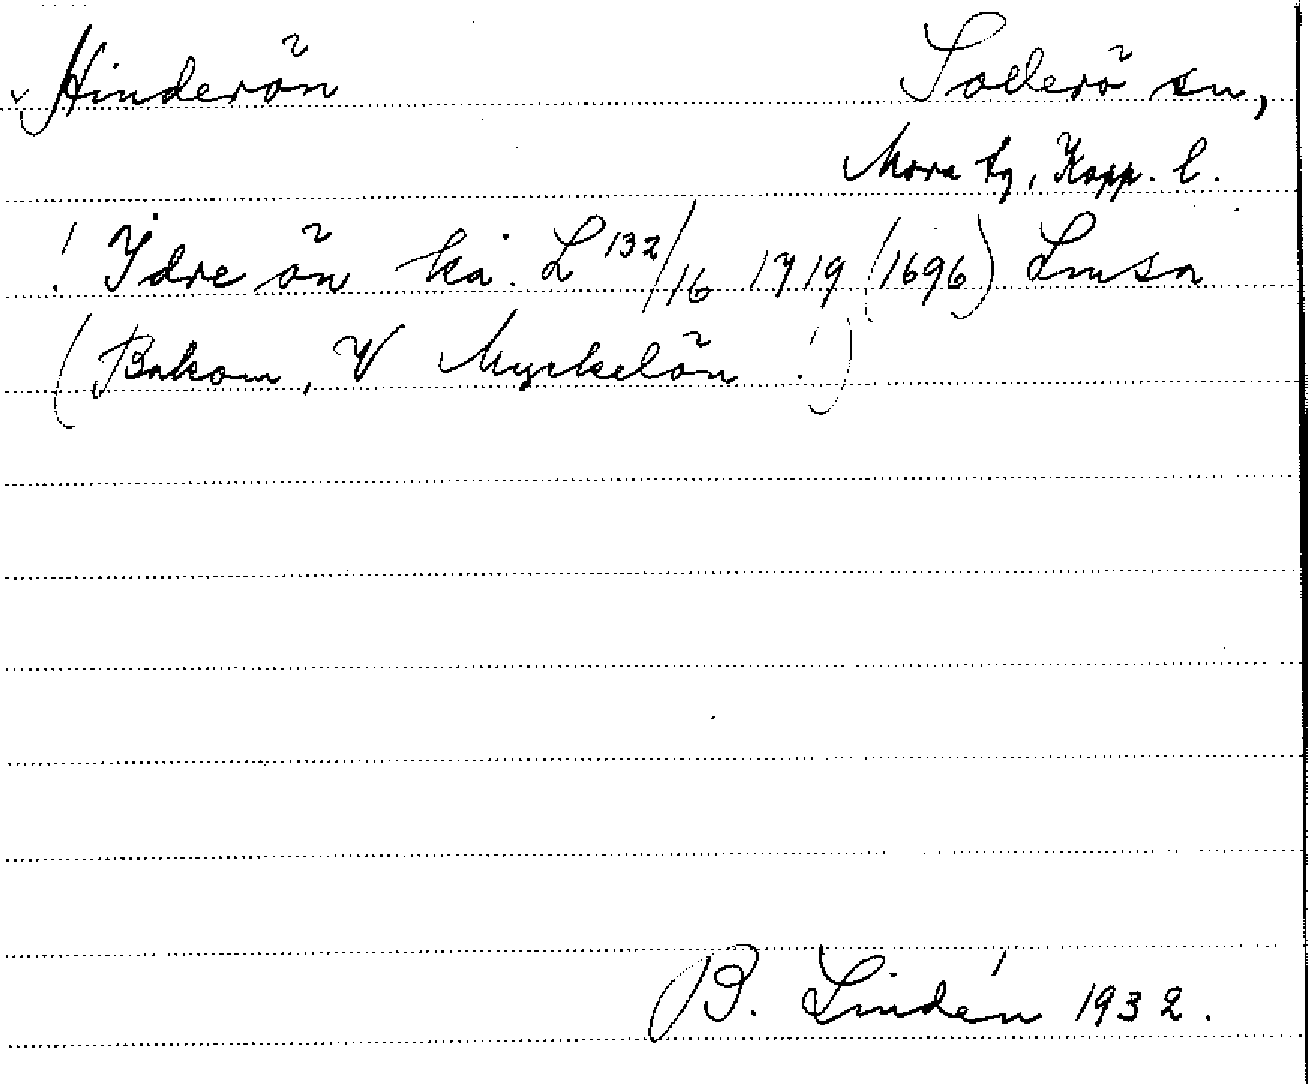 Hinderön Sollerö sn,
Mora tg, Kopp. l.
! Ydre ön ka. L 132/16 1719 (1696) Lmsa
(Bakom, V Myckelön !)
B. Lindén 1932.